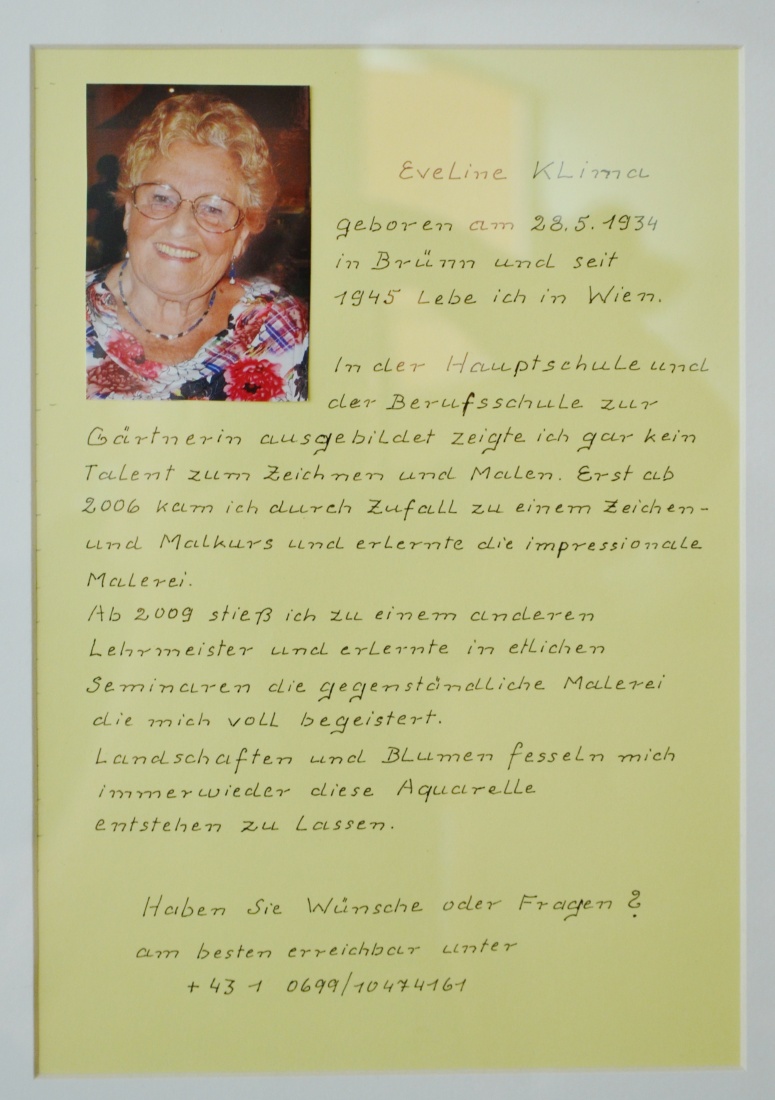 Eveline Klima
geboren am 28.5.1934
in Brünn und seit
1945 Lebe ich in Wien.
In der Hauptschule und
der Berufsschule zur
Gärtnerin ausgebildet zeigte ich gar kein
Talent zum Zeichnen und Malen. Erst ab
2006 kam ich durch Zufall zu einem Zeichen-
und Malkurs und erlernte die impressionale
Malerei.
Ab 2009 stieß ich zu einem anderen
Lehrmeister und erlernte in etlichen
Seminaren die gegenständliche Malerei
die mich voll begeistert.
Landschaften und Blumen fesseln mich
immerwieder diese Aquarelle
entstehen zu Lassen.
Haben Sie Wünsche oder Fragen?
am besten erreichbar unter
+43 1 0699/10474161